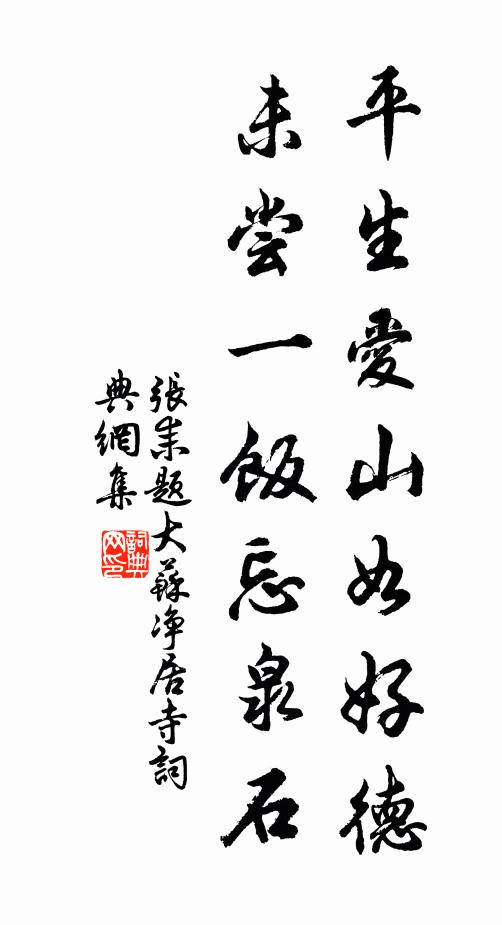 平生愛山如好德
未嘗一飯忘泉石
張耒題大蘇淨居寺詞
典網集
詞典
网印